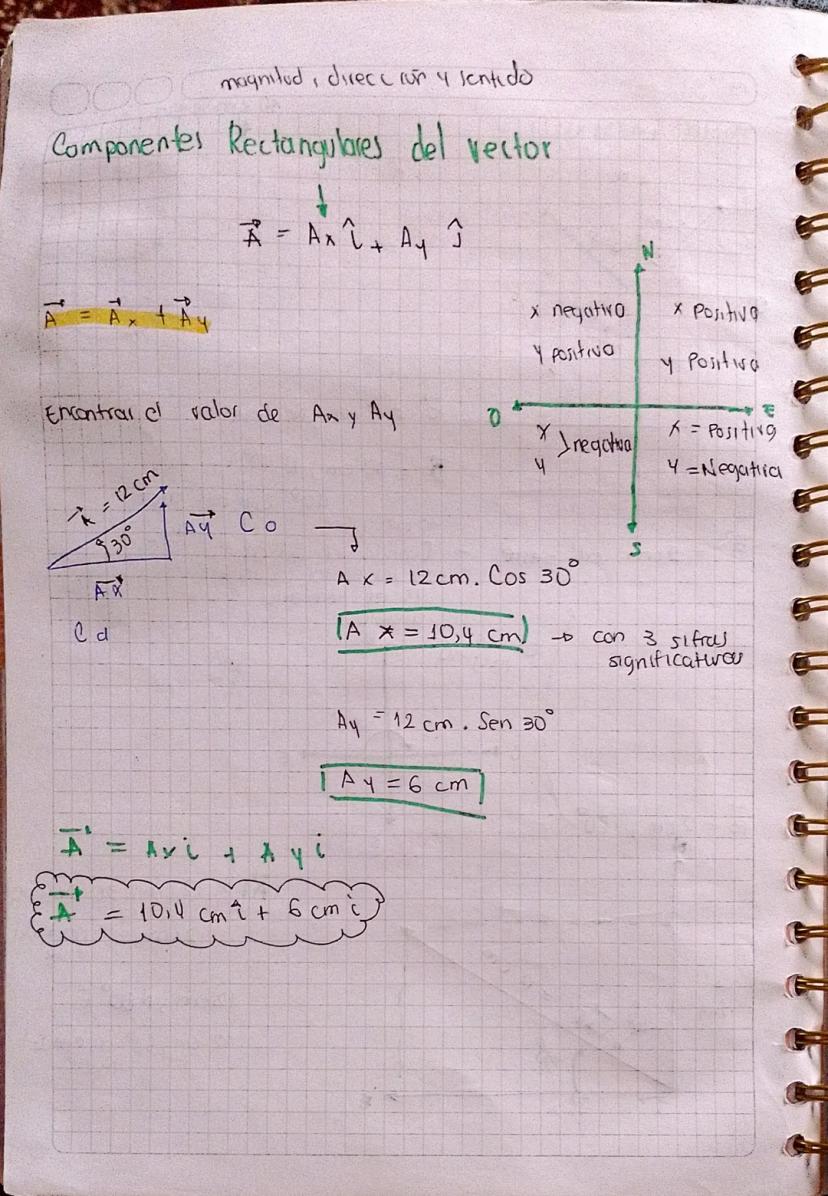 magnitud, dirección y sentido
Componentes Rectangulares del vector
A⃗ = Ax î + Ay ĵ
N
A⃗ = A⃗x + A⃗y
x negativo
y positivo
x Positiva
y Positiva
Encontrar el valor de Ax y Ay
O
E
x
y
} negativa
x = Positiva
y = Negativa
S
A⃗ = 12 cm
30°
Ay⃗ Co
Ax⃗
Cd
Ax = 12 cm. Cos 30°
Ax = 10,4 cm → con 3 sifras
significativas
Ay = 12 cm . Sen 30°
Ay = 6 cm
A⃗ = Ax i + Ay i
A⃗ = 10,4 cm î + 6 cm i